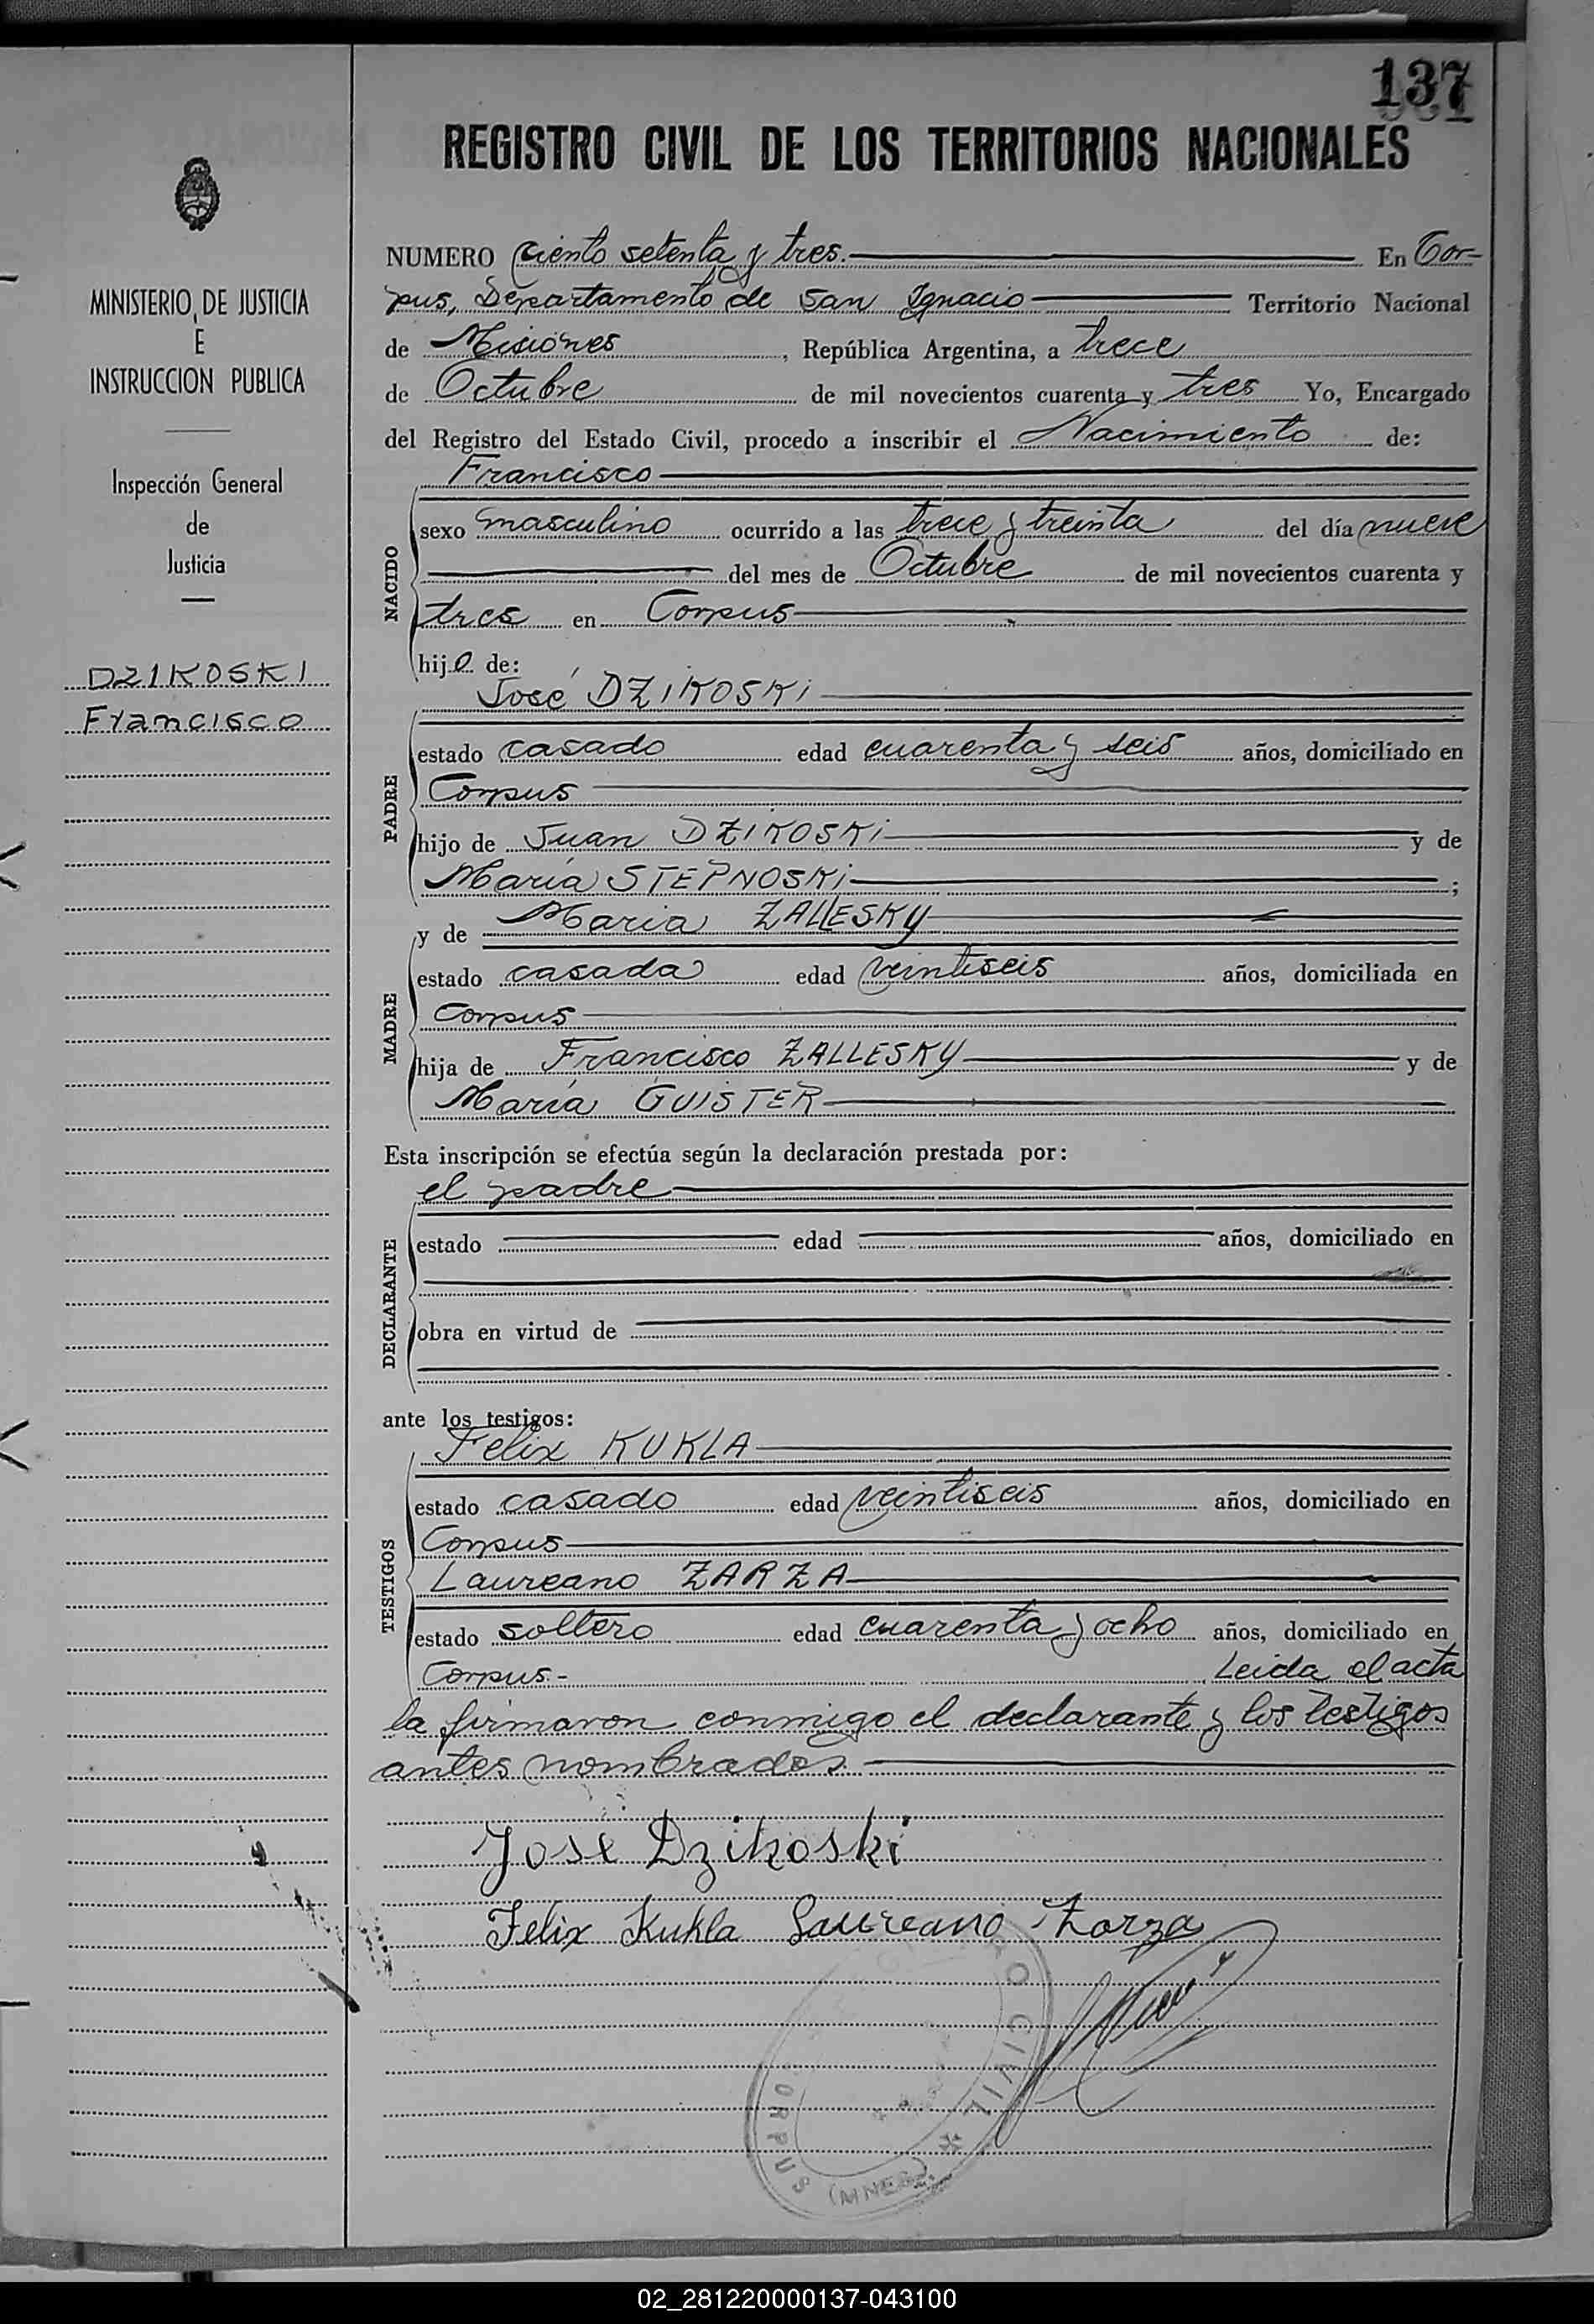 137
REGISTRO CIVIL DE LOS TERRITORIOS NACIONALES
MINISTERIO DE JUSTICIA
E
INSTRUCCION PUBLICA
Inspección General
de
Justicia
DZIKOSKI
Francisco
NUMERO Ciento setenta y tres.- En Cor-
pus, Departamento de San Ignacio Territorio Nacional
de Misiones, República Argentina, a trece
de Octubre de mil novecientos cuarenta y tres Yo, Encargado
del Registro del Estado Civil, procedo a inscribir el Nacimiento de:
Francisco
NACIDO
sexo masculino ocurrido a las trece y treinta del día nueve
del mes de Octubre de mil novecientos cuarenta y
tres en Corpus
hijo de:
José DZIKOSKi
PADRE
estado casado edad cuarenta y seis años, domiciliado en
Corpus
hijo de Juan DZIKOSKi y de
María STEPNOSKi;
y de Maria ZALLESKY
MADRE
estado casada edad veintiseis años, domiciliada en
Corpus
hija de Francisco ZALLESKY y de
María GUISTER
Esta inscripción se efectúa según la declaración prestada por:
el padre
DECLARANTE
estado edad años, domiciliado en
obra en virtud de
ante los testigos:
Felix KUKLA
TESTIGOS
estado casado edad veintiseis años, domiciliado en
Corpus
Laureano ZARZA
estado soltero edad cuarenta y ocho años, domiciliado en
Corpus.- Leida el acta
la firmaron conmigo el declarante y los testigos
antes nombrados.
José Dzikoski
Felix Kukla Laureano Zarza
CIVIL
CORPUS (MNES)
02_281220000137-043100